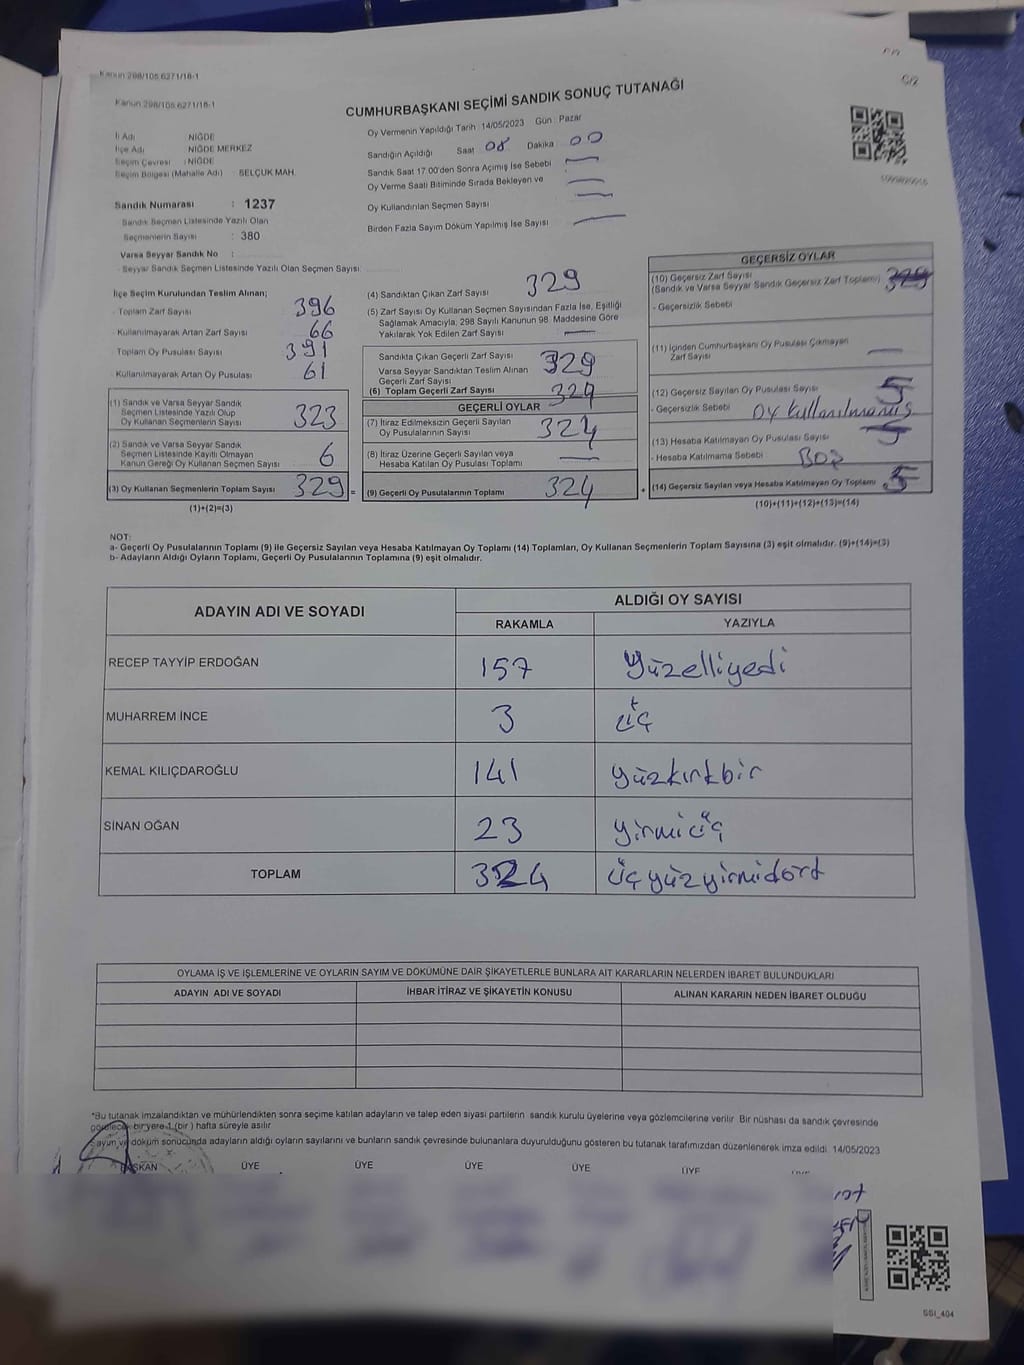 Kanun 298/105.6271/16-1
C/2
Kanun 298/105.6271/16-1
CUMHURBAŞKANI SEÇİMİ SANDIK SONUÇ TUTANAĞI
İl Adı NİĞDE
İlçe Adı NİĞDE MERKEZ
Seçim Çevresi : NİĞDE
Seçim Bölgesi (Mahalle Adı) : SELÇUK MAH.
Sandık Numarası : 1237
Sandık Seçmen Listesinde Yazılı Olan
Seçmenlerin Sayısı : 380
Varsa Seyyar Sandık No :
Seyyar Sandık Seçmen Listesinde Yazılı Olan Seçmen Sayısı:
Oy Vermenin Yapıldığı Tarih : 14/05/2023 Gün : Pazar
Sandığın Açıldığı Saat 08 Dakika 00
Sandık Saat 17.00'den Sonra Açımış İse Sebebi —
Oy Verme Saati Bitiminde Sırada Bekleyen ve —
Oy Kullandırılan Seçmen Sayısı —
Birden Fazla Sayım Döküm Yapılmış İse Sayısı —
İlçe Seçim Kurulundan Teslim Alınan;
- Toplam Zarf Sayısı 396
- Kullanılmayarak Artan Zarf Sayısı 66
Toplam Oy Pusulası Sayısı 391
- Kullanılmayarak Artan Oy Pusulası 61
(1) Sandık ve Varsa Seyyar Sandık
Seçmen Listesinde Yazılı Olup
Oy Kullanan Seçmenlerin Sayısı 323
(2) Sandık ve Varsa Seyyar Sandık
Seçmen Listesinde Kayıtlı Olmayan
Kanun Gereği Oy Kullanan Seçmen Sayısı 6
(3) Oy Kullanan Seçmenlerin Toplam Sayısı 329 =
(1)+(2)=(3)
(4) Sandıktan Çıkan Zarf Sayısı 329
(5) Zarf Sayısı Oy Kullanan Seçmen Sayısından Fazla İse, Eşitliği
Sağlamak Amacıyla, 298 Sayılı Kanunun 98. Maddesine Göre
Yakılarak Yok Edilen Zarf Sayısı —
Sandıkta Çıkan Geçerli Zarf Sayısı 329
Varsa Seyyar Sandıktan Teslim Alınan
Geçerli Zarf Sayısı
(6) Toplam Geçerli Zarf Sayısı 329
GEÇERLİ OYLAR
(7) İtiraz Edilmeksizin Geçerli Sayılan
Oy Pusulalarının Sayısı 324
(8) İtiraz Üzerine Geçerli Sayılan veya
Hesaba Katılan Oy Pusulası Toplamı —
(9) Geçerli Oy Pusulalarının Toplamı 324 +
GEÇERSİZ OYLAR
(10) Geçersiz Zarf Sayısı
(Sandık ve Varsa Seyyar Sandık Geçersiz Zarf Toplamı)
- Geçersizlik Sebebi
(11) İçinden Cumhurbaşkanı Oy Pusulası Çıkmayan
Zarf Sayısı —
(12) Geçersiz Sayılan Oy Pusulası Sayısı 5
- Geçersizlik Sebebi Oy kullanılmamış
(13) Hesaba Katılmayan Oy Pusulası Sayısı 5
- Hesaba Katılmama Sebebi Boş
(14) Geçersiz Sayılan veya Hesaba Katılmayan Oy Toplamı 5
(10)+(11)+(12)+(13)=(14)
NOT:
a- Geçerli Oy Pusulalarının Toplamı (9) ile Geçersiz Sayılan veya Hesaba Katılmayan Oy Toplamı (14) Toplamları, Oy Kullanan Seçmenlerin Toplam Sayısına (3) eşit olmalıdır. (9)+(14)=(3)
b- Adayların Aldığı Oyların Toplamı, Geçerli Oy Pusulalarının Toplamına (9) eşit olmalıdır.
ADAYIN ADI VE SOYADI ALDIĞI OY SAYISI
RAKAMLA YAZIYLA
RECEP TAYYİP ERDOĞAN 157 Yüzelliyedi
MUHARREM İNCE 3 üç
KEMAL KILIÇDAROĞLU 141 yüzkırkbir
SİNAN OĞAN 23 yirmiüç
TOPLAM 324 üçyüzyirmidört
OYLAMA İŞ VE İŞLEMLERİNE VE OYLARIN SAYIM VE DÖKÜMÜNE DAİR ŞİKAYETLERLE BUNLARA AİT KARARLARIN NELERDEN İBARET BULUNDUKLARI
ADAYIN ADI VE SOYADI İHBAR İTİRAZ VE ŞİKAYETİN KONUSU ALINAN KARARIN NEDEN İBARET OLDUĞU
*Bu tutanak imzalandıktan ve mühürlendikten sonra seçime katılan adayların ve talep eden siyasi partilerin sandık kurulu üyelerine veya gözlemcilerine verilir. Bir nüshası da sandık çevresinde
görülecek bir yere 1 (bir) hafta süreyle asılır.
Sayım ve döküm sonucunda adayların aldığı oyların sayılarını ve bunların sandık çevresinde bulunanlara duyurulduğunu gösteren bu tutanak tarafımızdan düzenlenerek imza edildi. 14/05/2023
BAŞKAN ÜYE ÜYE ÜYE ÜYE ÜYE
SSI_404